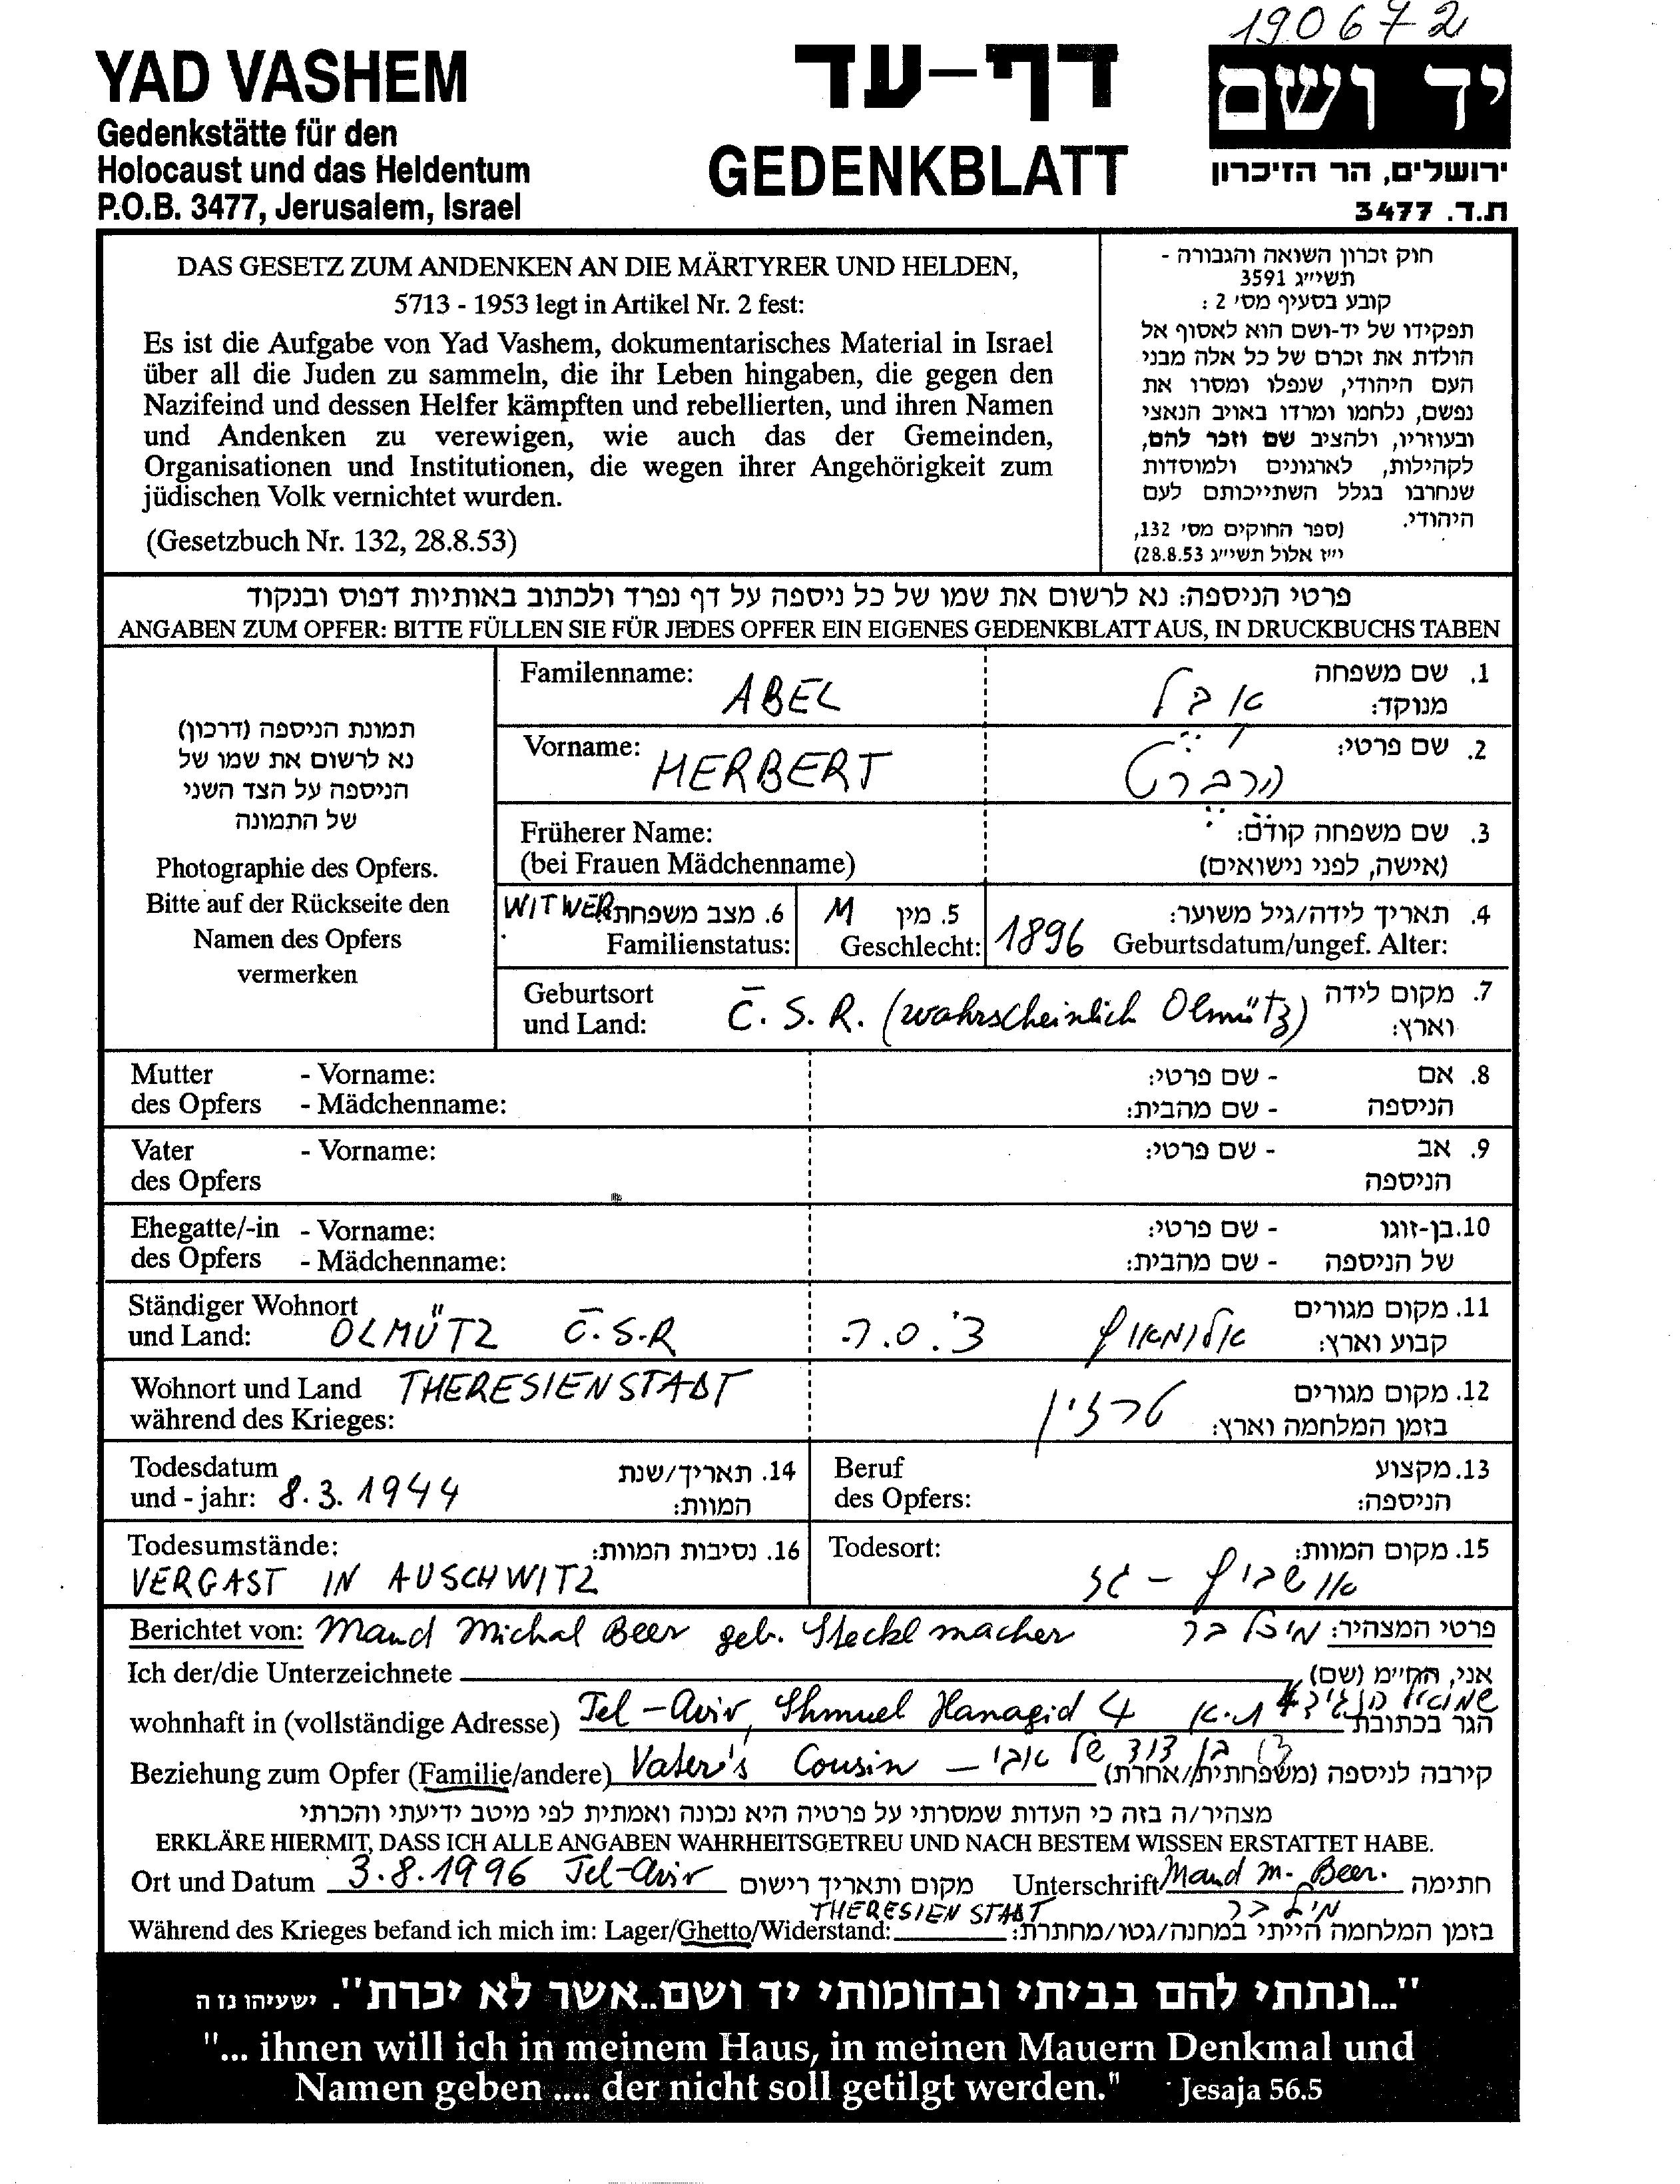 190672
YAD VASHEM
Gedenkstätte für den
Holocaust und das Heldentum
P.O.B. 3477, Jerusalem, Israel
דף-עד
GEDENKBLATT
יד ושם
ירושלים, הר הזיכרון
ת.ד. 3477
DAS GESETZ ZUM ANDENKEN AN DIE MÄRTYRER UND HELDEN,
5713 - 1953 legt in Artikel Nr. 2 fest:
Es ist die Aufgabe von Yad Vashem, dokumentarisches Material in Israel
über all die Juden zu sammeln, die ihr Leben hingaben, die gegen den
Nazifeind und dessen Helfer kämpften und rebellierten, und ihren Namen
und Andenken zu verewigen, wie auch das der Gemeinden,
Organisationen und Institutionen, die wegen ihrer Angehörigkeit zum
jüdischen Volk vernichtet wurden.
(Gesetzbuch Nr. 132, 28.8.53)
חוק זכרון השואה והגבורה -
תשי״ג 3591
קובע בסעיף מס׳ 2 :
תפקידו של יד-ושם הוא לאסוף אל
הולדת את זכרם של כל אלה מבני
העם היהודי, שנפלו ומסרו את
נפשם, נלחמו ומרדו באויב הנאצי
ובעוזריו, ולהציב שם וזכר להם,
לקהילות, לארגונים ולמוסדות
שנחרבו בגלל השתייכותם לעם
היהודי.
(ספר החוקים מס׳ 132,
י״ז אלול תשי״ג 28.8.53)
פרטי הניספה: נא לרשום את שמו של כל ניספה על דף נפרד ולכתוב באותיות דפוס ובנקוד
ANGABEN ZUM OPFER: BITTE FÜLLEN SIE FÜR JEDES OPFER EIN EIGENES GEDENKBLATT AUS, IN DRUCKBUCHS TABEN
תמונת הניספה (דרכון)
נא לרשום את שמו של
הניספה על הצד השני
של התמונה
Photographie des Opfers.
Bitte auf der Rückseite den
Namen des Opfers
vermerken
Familenname: ABEL אבל 1. שם משפחה
מנוקד:
Vorname: HERBERT הרברט 2. שם פרטי:
Früherer Name: 3. שם משפחה קודם:
(bei Frauen Mädchenname) (אישה, לפני נישואים)
WITWER 6. מצב משפחתי M 5. מין 1896 4. תאריך לידה/גיל משוער:
Familienstatus: Geschlecht: Geburtsdatum/ungef. Alter:
Geburtsort Č. S. R. (wahrscheinlich Olmütz) 7. מקום לידה
und Land: וארץ:
Mutter - Vorname: - שם פרטי: 8. אם
des Opfers - Mädchenname: - שם מהבית: הניספה
Vater - Vorname: - שם פרטי: 9. אב
des Opfers הניספה
Ehegatte/-in - Vorname: - שם פרטי: 10. בן-זוגו
des Opfers - Mädchenname: - שם מהבית: של הניספה
Ständiger Wohnort 11. מקום מגורים
und Land: OLMÜTZ Č.S.R צ׳.ס.ר. אולמאוץ קבוע וארץ:
Wohnort und Land THERESIENSTADT טרזין 12. מקום מגורים
während des Krieges: בזמן המלחמה וארץ:
Todesdatum 14. תאריך/שנת Beruf 13. מקצוע
und - jahr: 8.3.1944 המוות: des Opfers: הניספה:
Todesumstände: 16. נסיבות המוות: Todesort: 15. מקום המוות:
VERGAST IN AUSCHWITZ אושביץ - גז
Berichtet von: Maud Michal Beer geb. Steckelmacher מיכל בר פרטי המצהיר:
Ich der/die Unterzeichnete אני, הח״מ (שם)
wohnhaft in (vollständige Adresse) Tel-Aviv, Shmuel Hanagid 4 שמואל הנגיד 4 ת.א הגר בכתובת
Beziehung zum Opfer (Familie/andere) Vater's Cousin - בן דוד של אבי קירבה לניספה (משפחתית/אחרת)
מצהיר/ה בזה כי העדות שמסרתי על פרטיה היא נכונה ואמתית לפי מיטב ידיעתי והכרתי
ERKLÄRE HIERMIT, DASS ICH ALLE ANGABEN WAHRHEITSGETREU UND NACH BESTEM WISSEN ERSTATTET HABE.
Ort und Datum 3.8.1996 Tel-Aviv מקום ותאריך רישום Unterschrift Maud M. Beer. חתימה
THERESIENSTADT מיכל בר
Während des Krieges befand ich mich im: Lager/Ghetto/Widerstand: בזמן המלחמה הייתי במחנה/גטו/מחתרת:
"...ונתתי להם בביתי ובחומותי יד ושם..אשר לא יכרת". ישעיהו נז ה
"... ihnen will ich in meinem Haus, in meinen Mauern Denkmal und
Namen geben .... der nicht soll getilgt werden." Jesaja 56.5